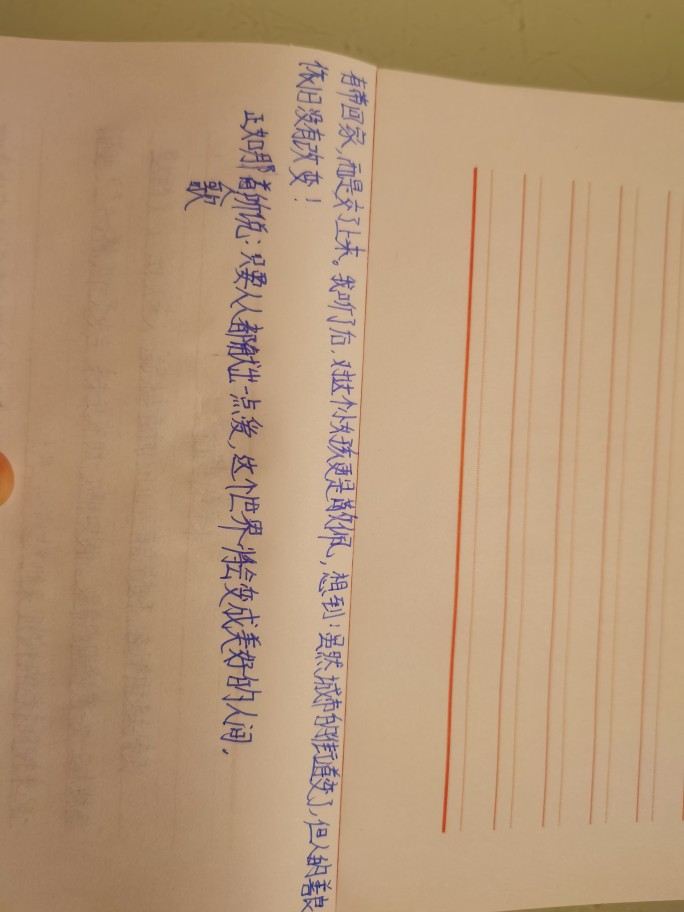 有带回家,而是交了上来。我听了后,对这个小女孩更是敬佩,想到:虽然城市的街道变了,但人的善良
依旧没有改变!
正如那首歌所说:只要人人都献出一点爱,这个世界将会变成美好的人间。